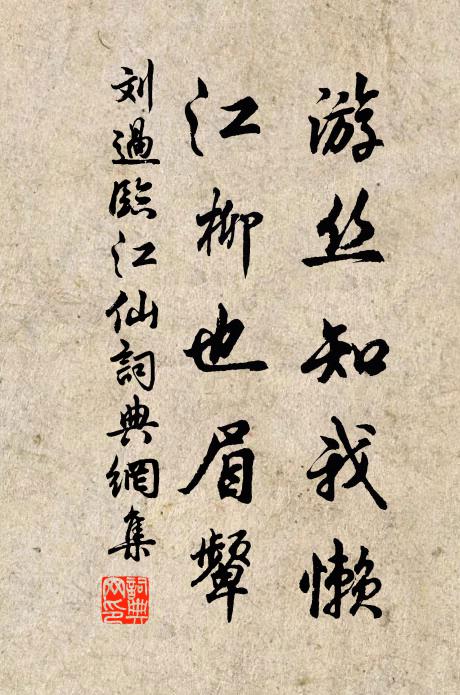 游丝知我懒
江柳也眉颦
刘過臨江仙詞典網集
詞典
网印